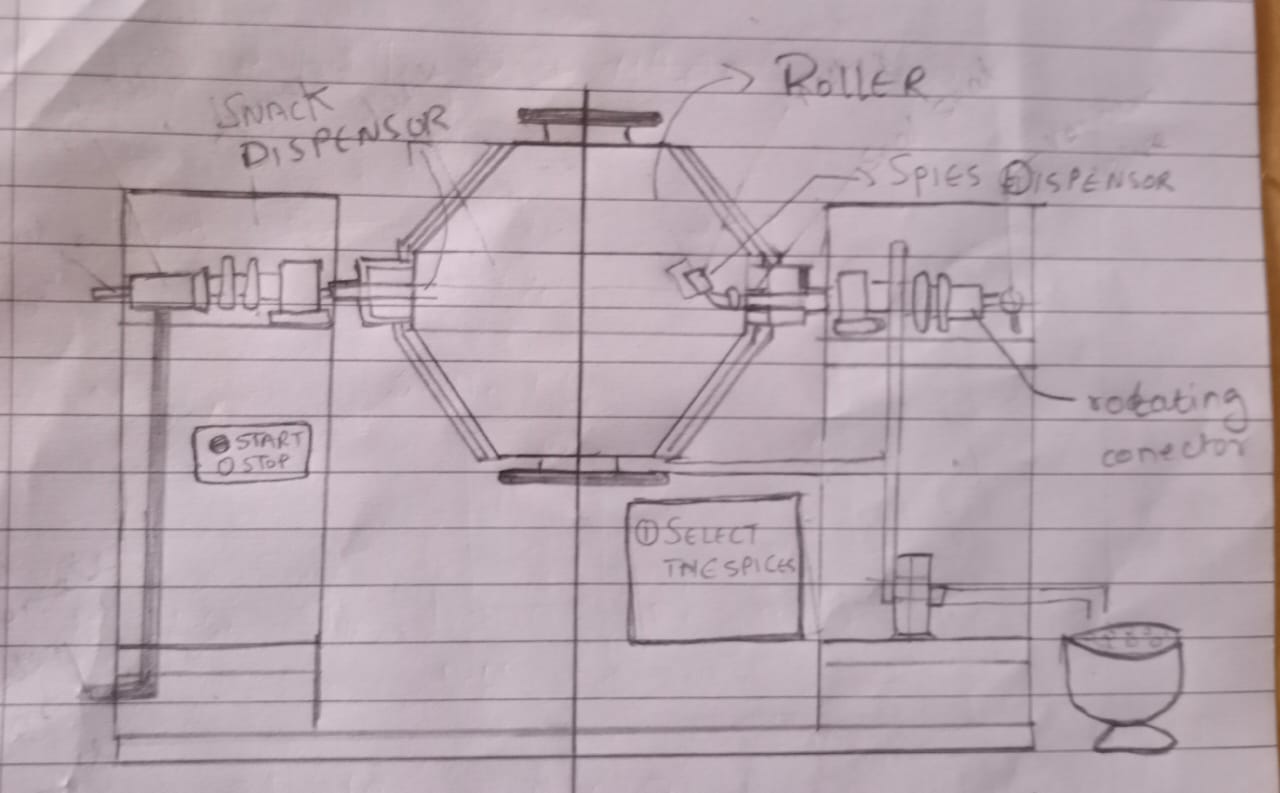 SNACK
DISPENSOR
ROLLER
SPIES DISPENSOR
rotating
conector
START
STOP
① SELECT
THE SPICES